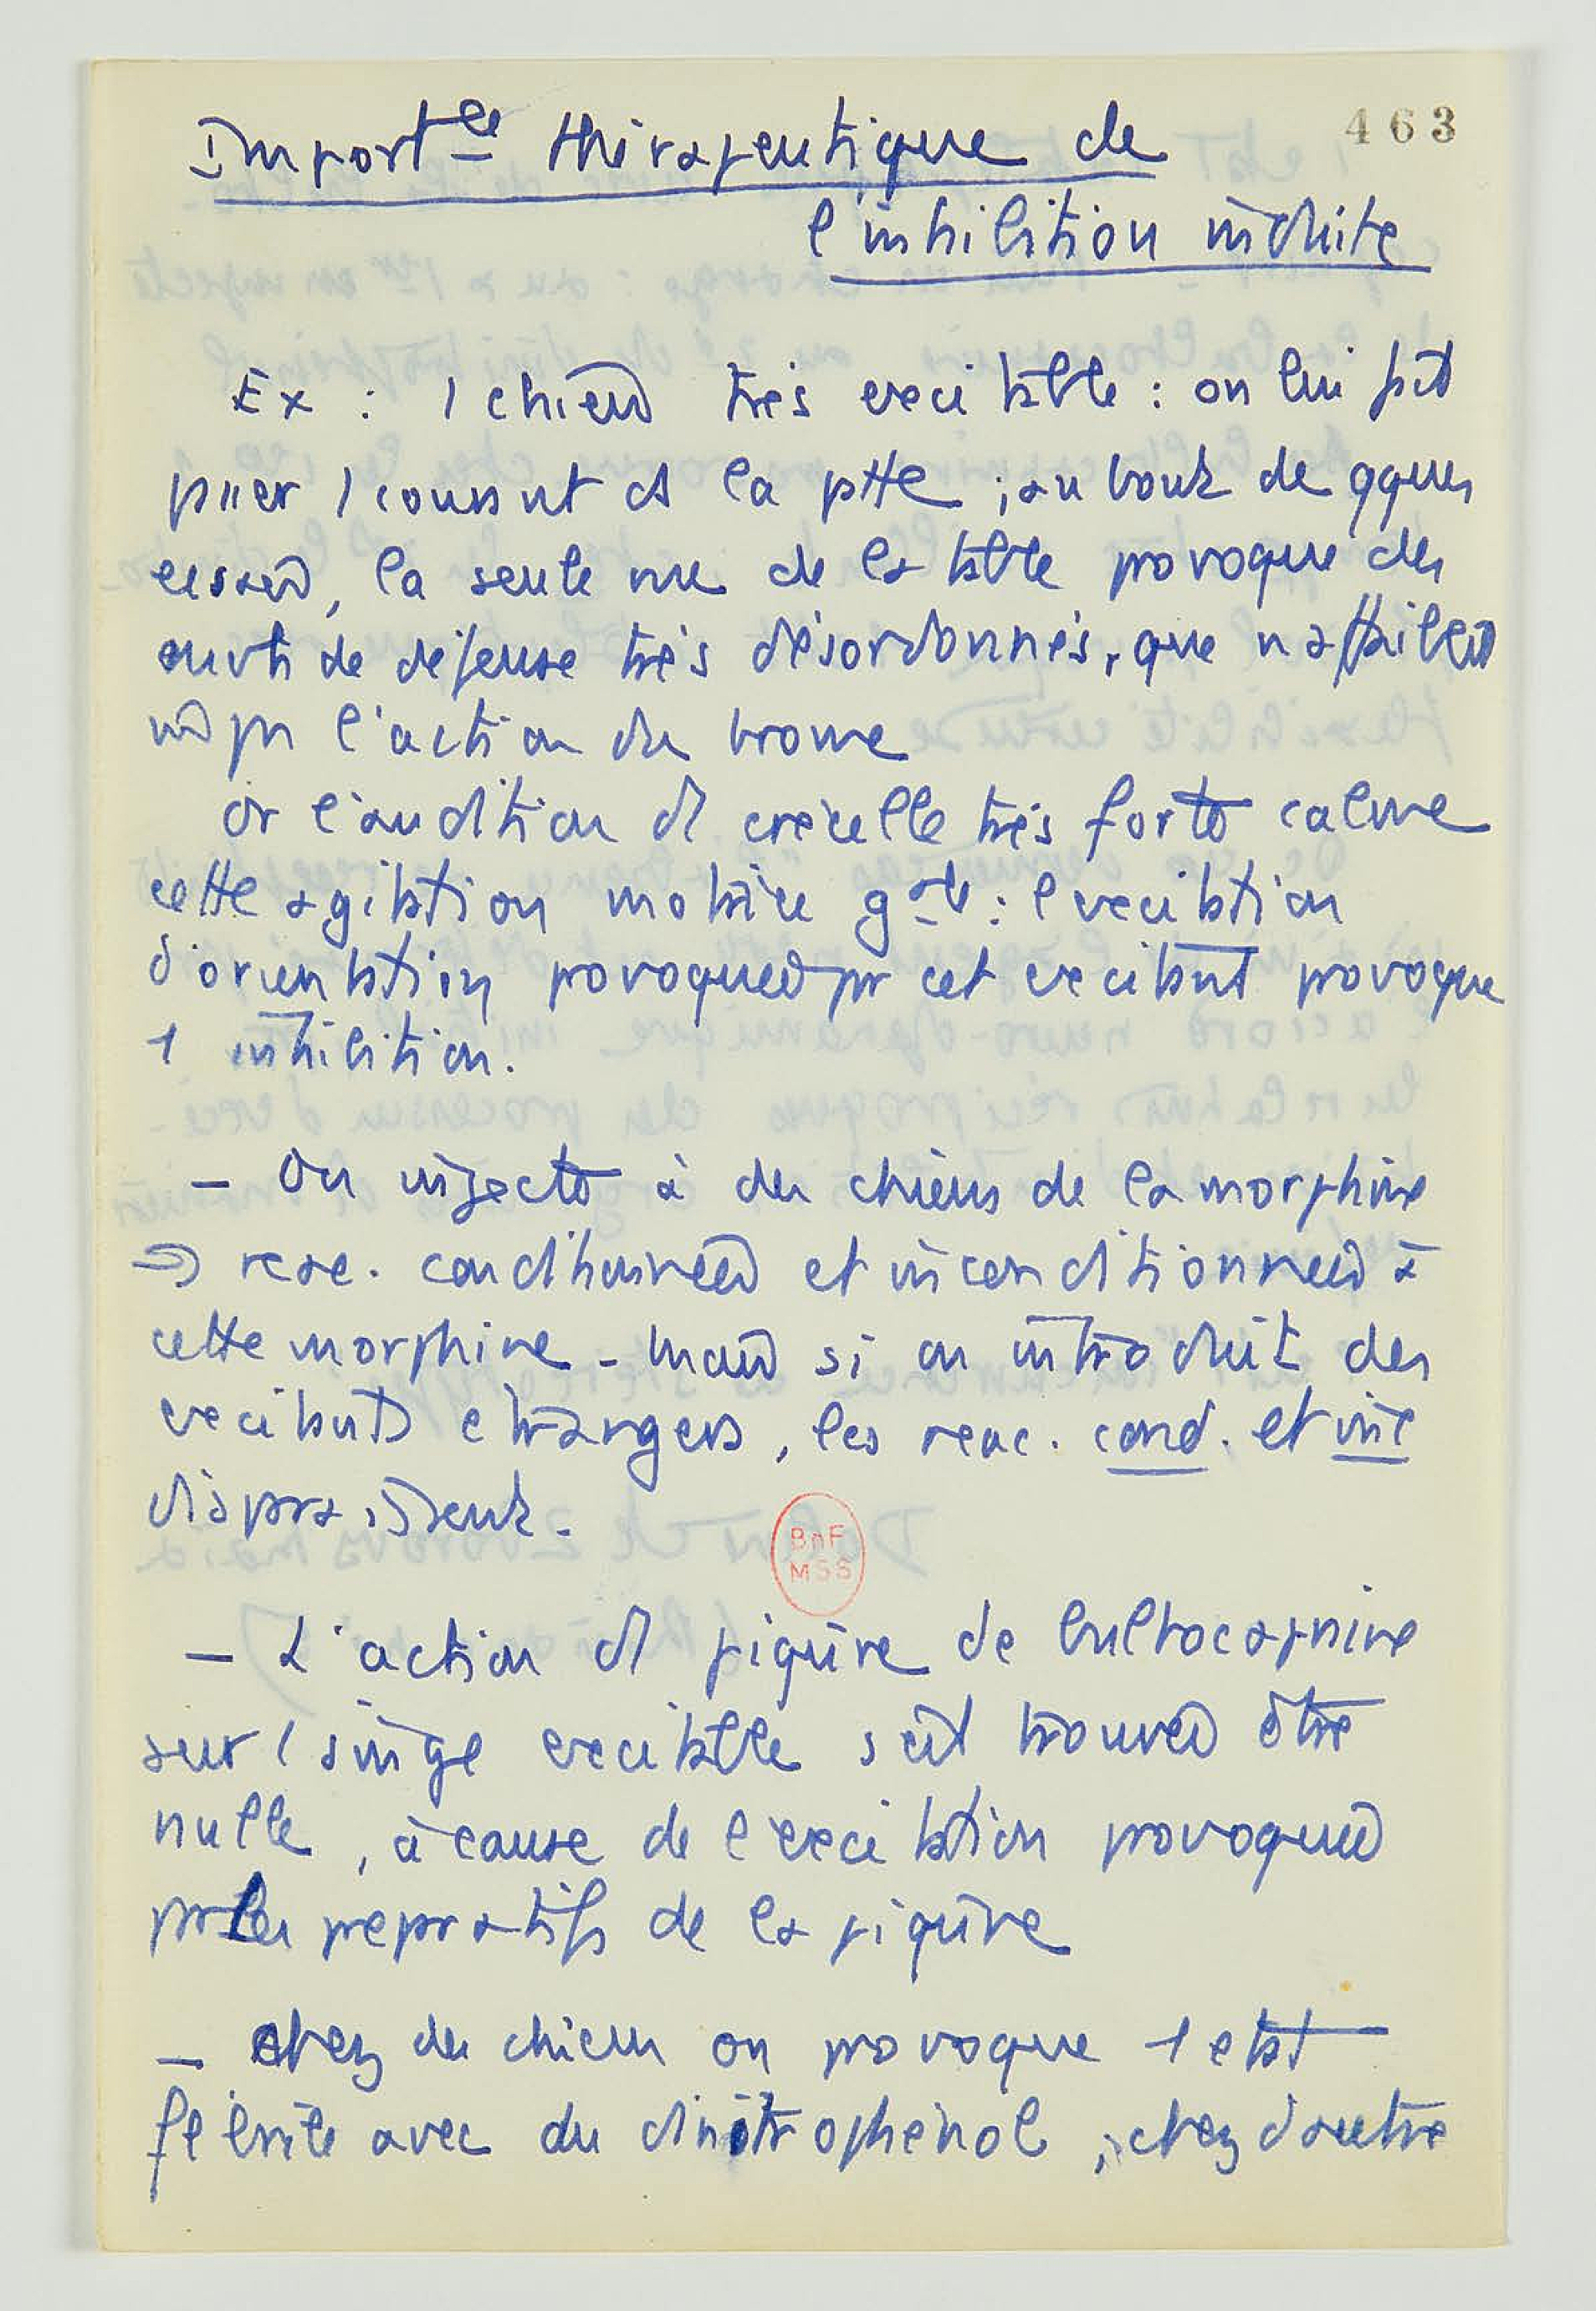 463
Import^ce thérapeutique de
l'inhibition induite
Ex : 1 chien très excitable : on lui fait
passer 1 courant ds la patte ; au bout de qques
essais, la seule vue de la table provoque des
mvts de défense très désordonnés, que n'affaiblit
pas l'action du brome
or l'audition d'1 crécelle très forte calme
cette agitation motrice g^ale : l'excitation
d'orientation provoquée par cet excitant provoque
1 inhibition.
– On injecte à des chiens de la morphine
⇒ reac. conditionnées et inconditionnées à
cette morphine – mais si on introduit des
excitants étrangers, les reac. cond. et inc
disparaissent.
BnF
MSS
– L'action d'1 piqûre de bulbocapnine
sur 1 singe excitable s'est trouvée être
nulle, à cause de l'excitation provoquée
par les préparatifs de la piqûre
– chez des chiens on provoque 1 état
fébrile avec du dinitrophénol ; chez d'autre